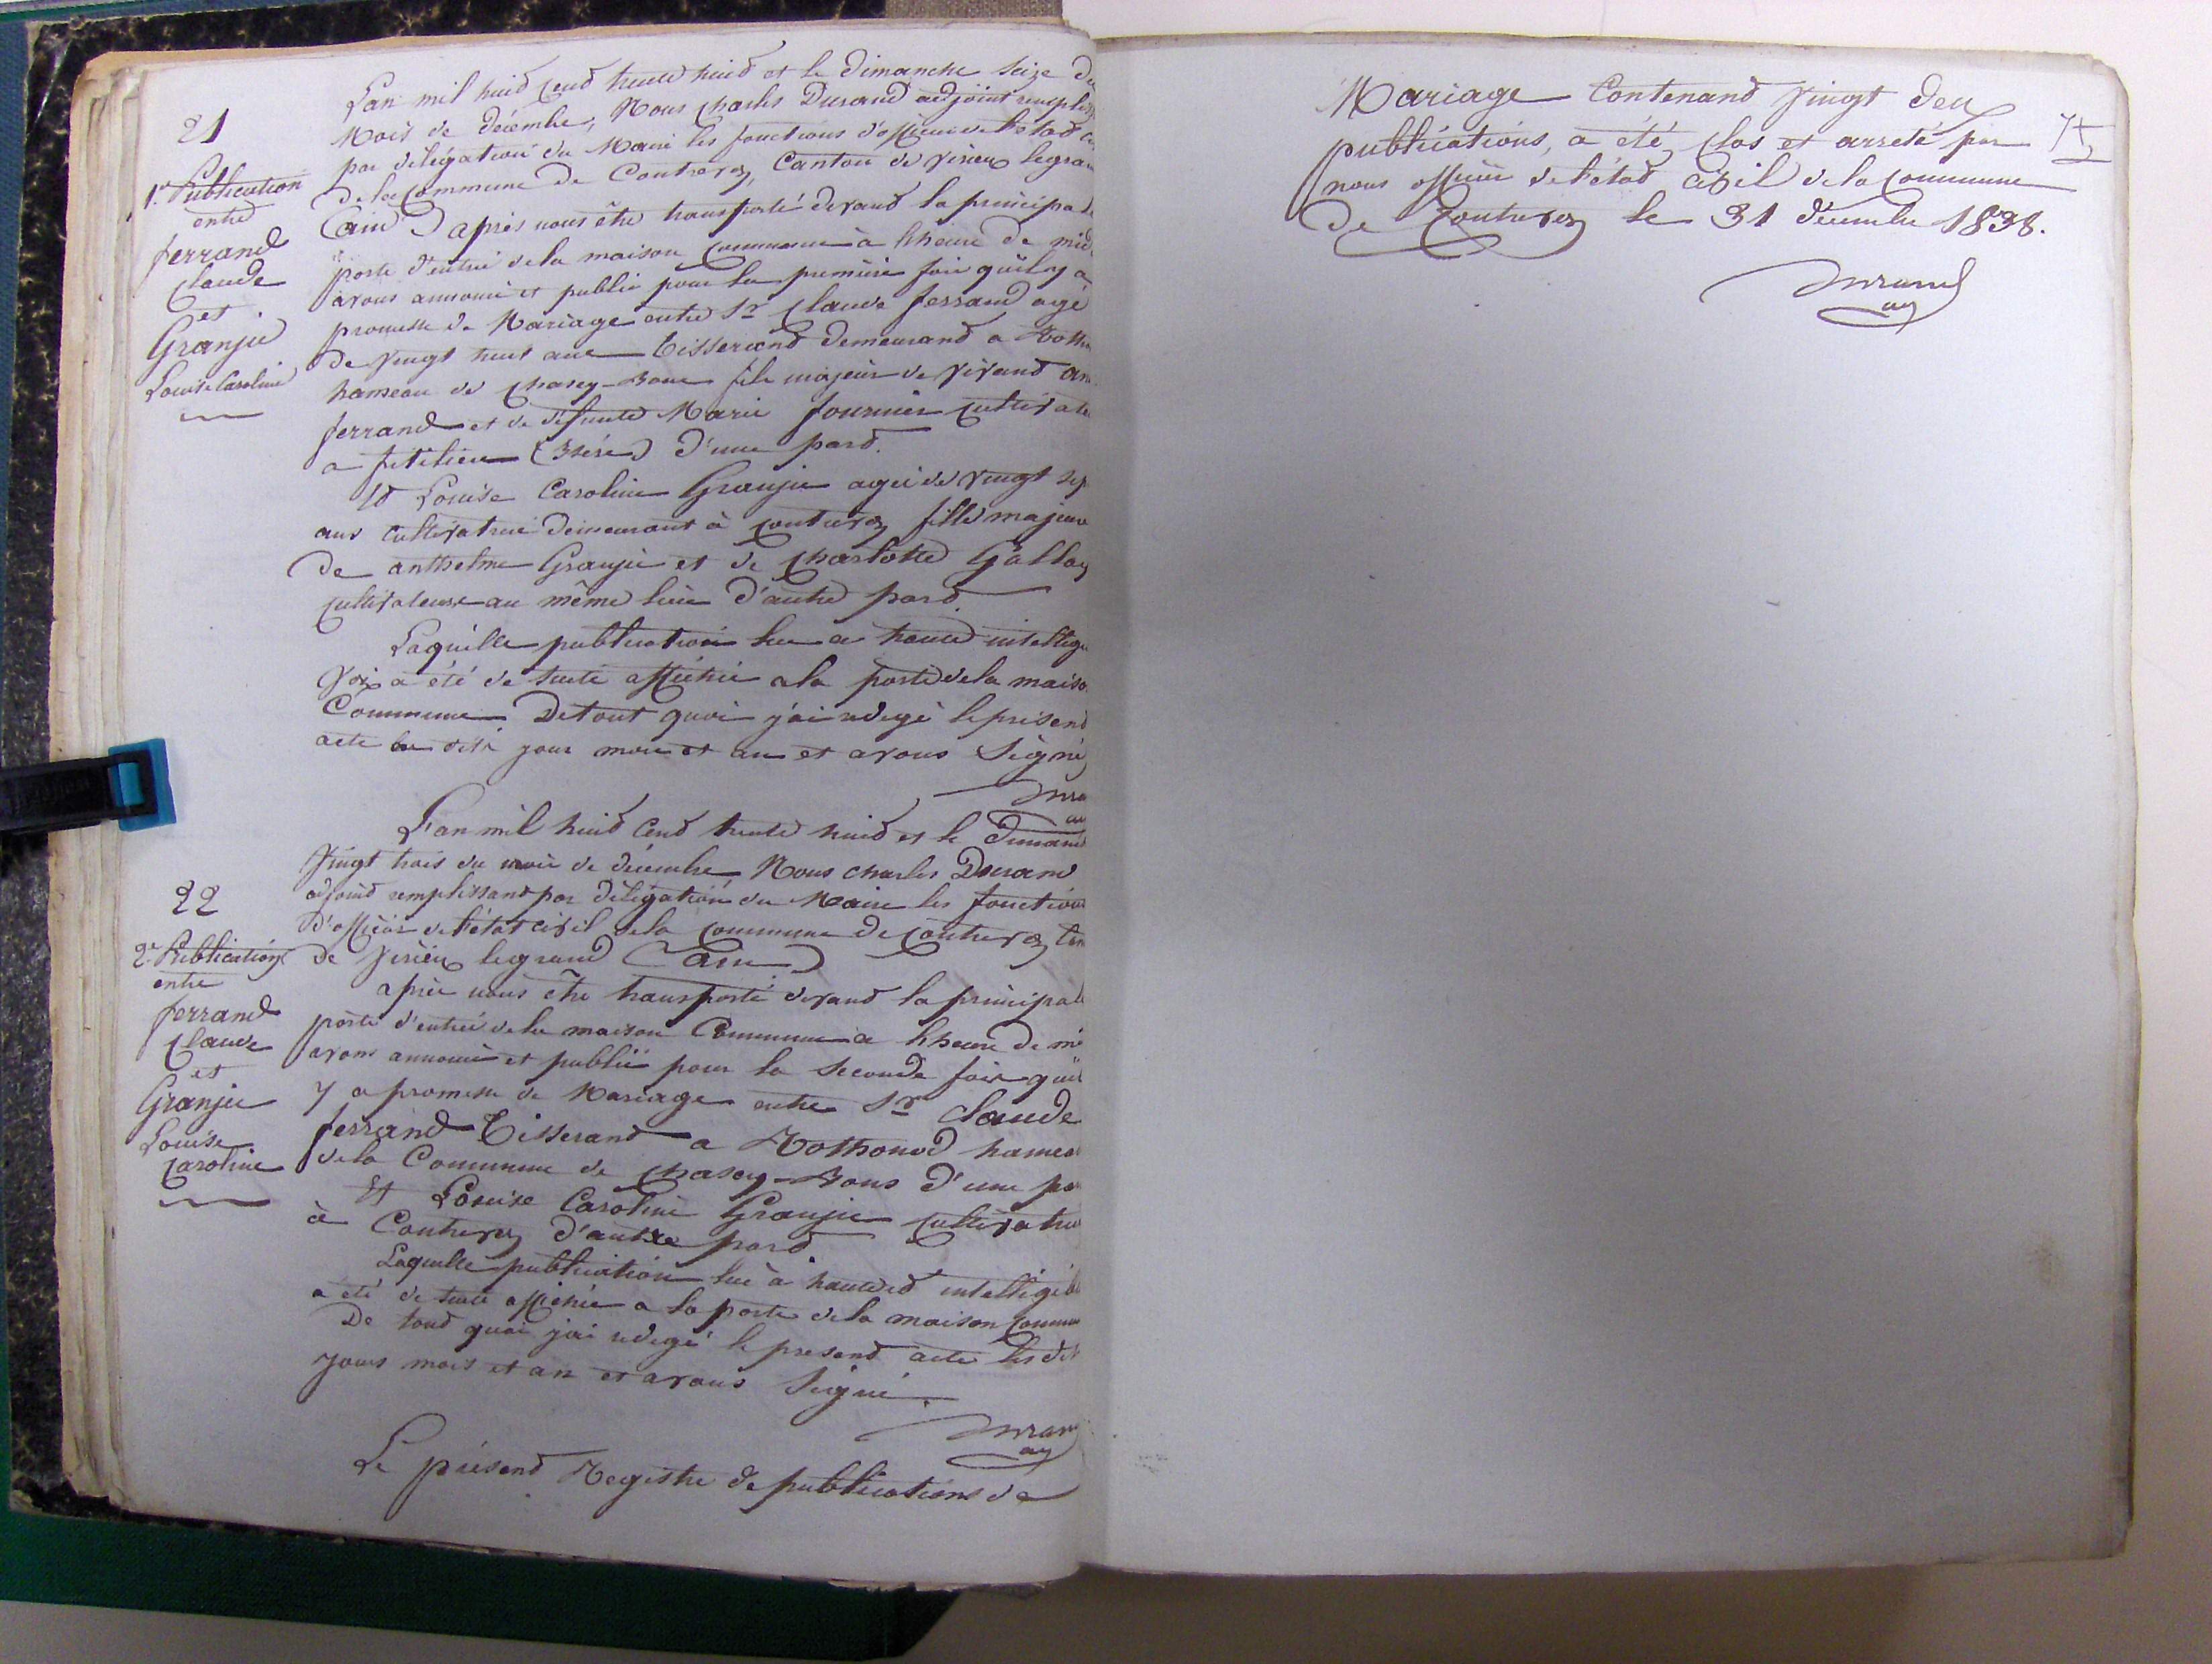 21
1.e Publication
entre
ferrand
Claude
et
Granjié
Louise Caroline
L'an mil huid cend trente huid et le Dimanche seize du
Mois de décembre, Nous Charles Durand adjoint
par délégation du Maire les fonctions d'officier de l'etad
De la Commune de Contrevoz, Canton de Virieu legrand
(ain) après nous être transporté devand la principale
porte d'entrée de la maison Commune à l'heure de midi
avons annoncé et publié pour la premiere fois quil y a
promesse de Mariage entre Sr Claude ferrand agé
de vingt huit ans Tisserand demeurand a Rotho
hameau de Chazey-Bons fils majeur de vivand
ferrand et de défunte Marie fournier cultivate
a fitilieu (Isére) D'une pard.
Et Louise Caroline Granjié agée de vingt sep
ans cultivatrice demeurant à Contrevoz fille majeure
De anthelme Granjié et de Charlotte Gallay
cultivateurs au même lieu D'autre pard.
Laquelle publication lue a haute intellig
Voix a été de suite affichée a la porte de la maiso
Commune De tout quoi j'ai redigé le présend
acte les dits jour mois et an et avons Signé
Dura
22
2.e Publication
entre
ferrand
Claude
et
Granjié
Louise
Caroline
L'an mil huid Cend trente huid et le Dimanch
Vingt trois du mois de décembre, Nous Charles Durand
adjoind remplissant par délégation du Maire les fonctions
D'officier de l'état civil de la Commune de Contrevoz, Can
de Virieu legrand (ain)
après nous être transporté devand la principale
porte d'entrée de la maison Commune a l'heure de mi
avons annoncé et publié pour la seconde fois quil
y a promesse de Mariage entre Sr Claude
ferrand Tisserand a Rothonod hameau
de la Commune de Chazey-Bons d'une par
Et Louise Caroline Granjié Cultivatrice
à Contrevoz d'autre pard.
Laquelle publication lue à haute et intelligibl
a été de suite affichée a la porte de la maison Commun
De toud quoi j'ai redigé le presend acte les dit
jours mois et an et avons Signé.
Durand
Le présend Registre de publications de
Mariage Contenand Vingt deux
publications, a été, clos et arreté par
nous officier de l'étad civil de la Commune
De Contrevoz le 31 décembre 1838.
Durand